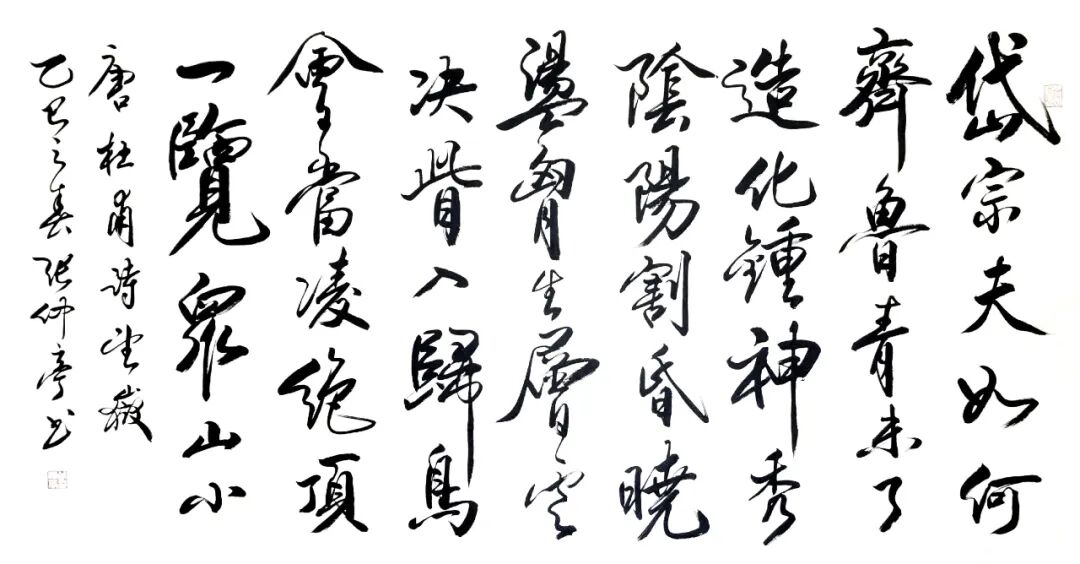 岱宗夫如何
齊魯青未了
造化鍾神秀
陰陽割昏曉
盪胷生層雲
決眥入歸鳥
會當凌絶頂
一覽眾山小
唐杜甫詩望嶽
乙巳之春張仲亭書